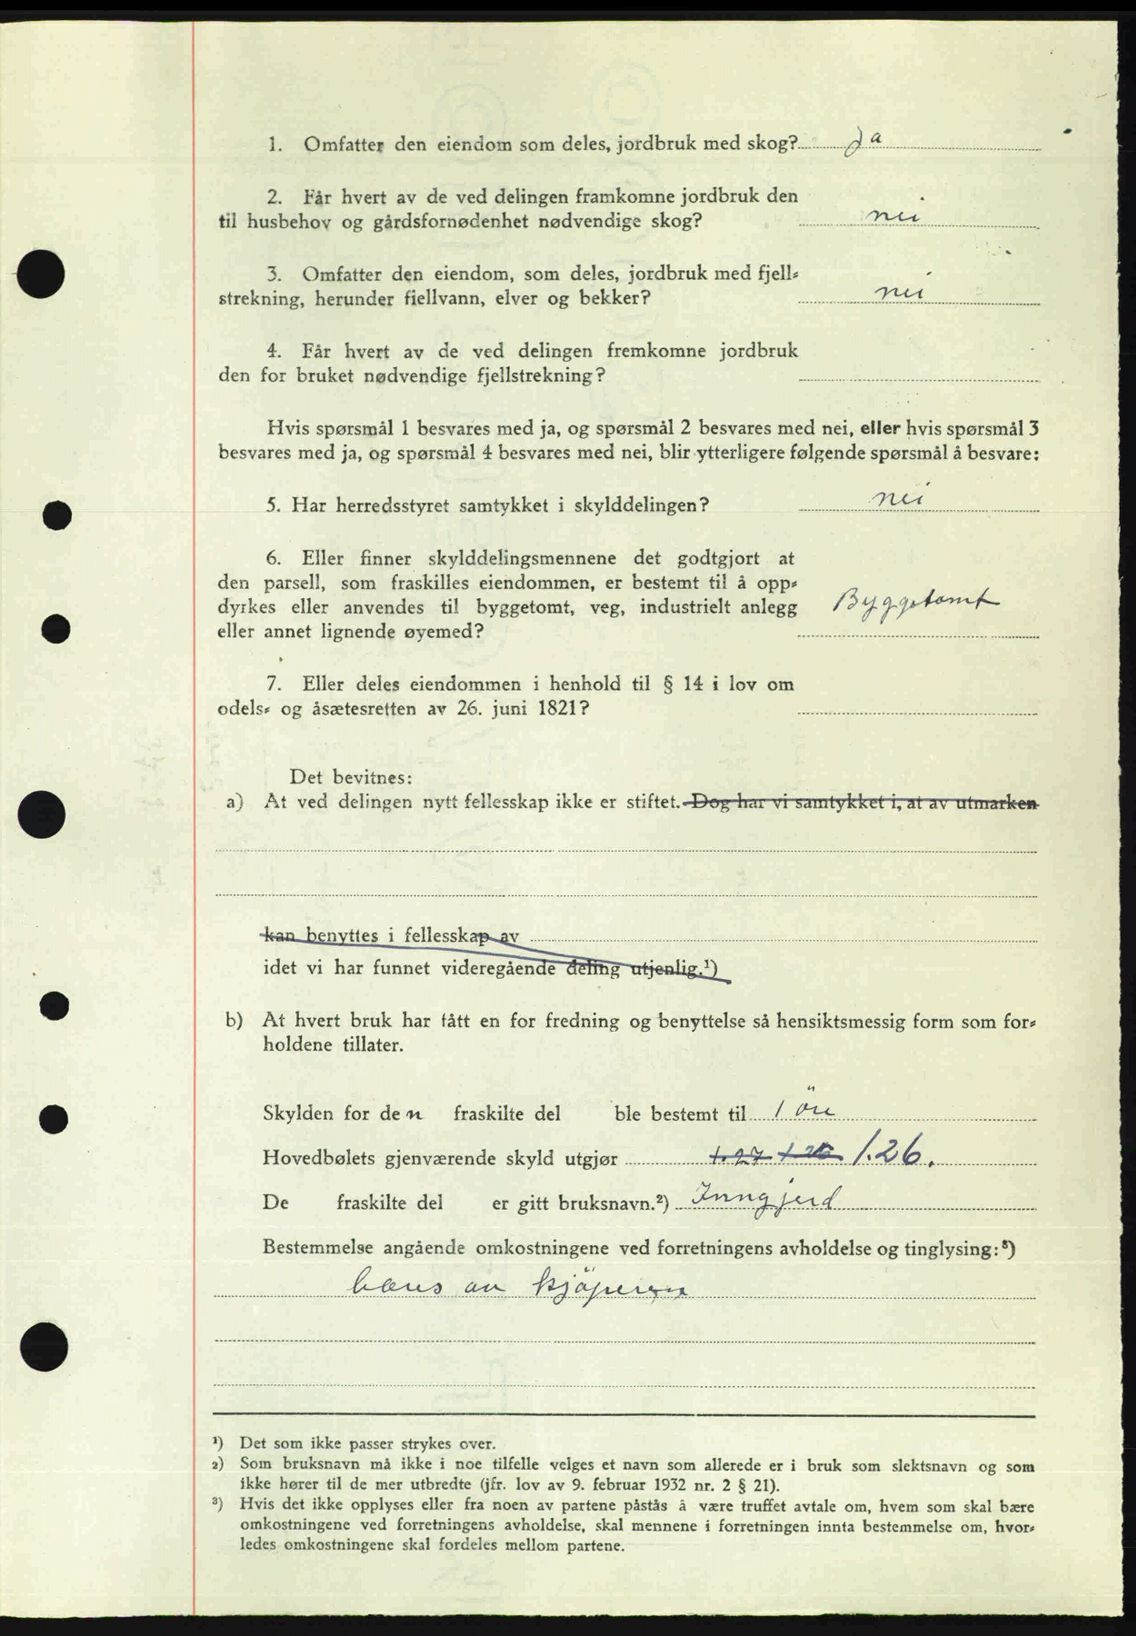 1. Omfatter den eiendom som deles, jordbruk med skog? Ja
2. Får hvert av de ved delingen framkomne jordbruk den
til husbehov og gårdsfornødenhet nødvendige skog? nei
3. Omfatter den eiendom, som deles, jordbruk med fjell-
strekning, herunder fjellvann, elver og bekker? nei
4. Får hvert av de ved delingen fremkomne jordbruk
den for bruket nødvendige fjellstrekning?
Hvis spørsmål 1 besvares med ja, og spørsmål 2 besvares med nei, eller hvis spørsmål 3
besvares med ja, og spørsmål 4 besvares med nei, blir ytterligere følgende spørsmål å besvare:
5. Har herredsstyret samtykket i skylddelingen? nei
6. Eller finner skylddelingsmennene det godtgjort at
den parsell, som fraskilles eiendommen, er bestemt til å opp-
dyrkes eller anvendes til byggetomt, veg, industrielt anlegg Byggetomt
eller annet lignende øyemed?
7. Eller deles eiendommen i henhold til § 14 i lov om
odels- og åsætesretten av 26. juni 1821?
Det bevitnes:
a) At ved delingen nytt fellesskap ikke er stiftet. Dog har vi samtykket i, at av utmarken
kan benyttes i fellesskap av
idet vi har funnet videregående deling utjenlig.¹)
b) At hvert bruk har fått en for fredning og benyttelse så hensiktsmessig form som for-
holdene tillater.
Skylden for den fraskilte del ble bestemt til 1 öre
Hovedbølets gjenværende skyld utgjør 1.27 1.26 1.26.
De fraskilte del er gitt bruksnavn.²) Inngjerd
Bestemmelse angående omkostningene ved forretningens avholdelse og tinglysing:³)
bæres av kjöperen
¹) Det som ikke passer strykes over.
²) Som bruksnavn må ikke i noe tilfelle velges et navn som allerede er i bruk som slektsnavn og som
ikke hører til de mer utbredte (jfr. lov av 9. februar 1932 nr. 2 § 21).
³) Hvis det ikke opplyses eller fra noen av partene påstås å være truffet avtale om, hvem som skal bære
omkostningene ved forretningens avholdelse, skal mennene i forretningen innta bestemmelse om, hvor-
ledes omkostningene skal fordeles mellom partene.